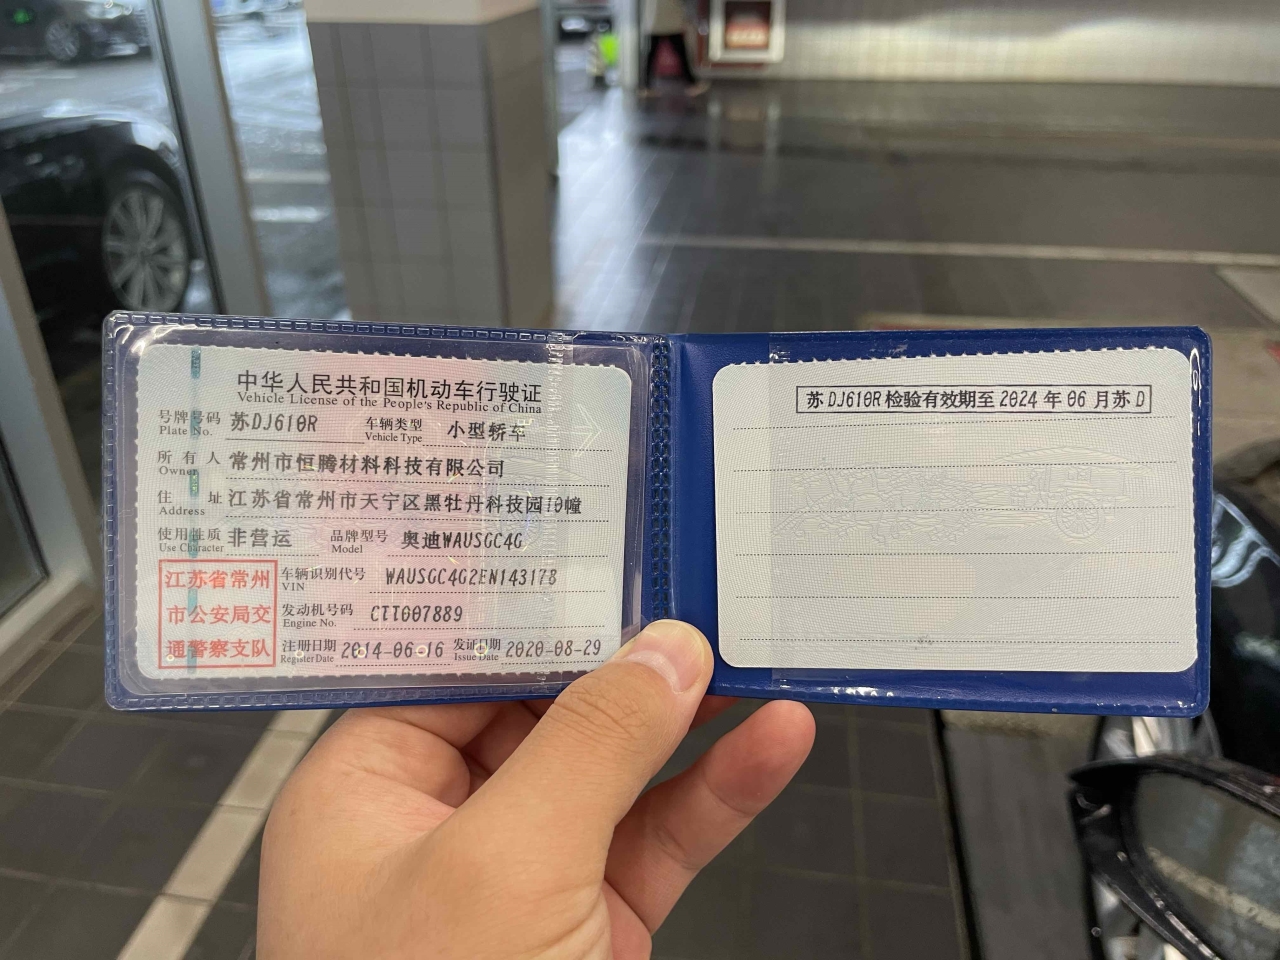 中华人民共和国机动车行驶证
Vehicle License of the People's Republic of China
号牌号码 苏DJ610R 车辆类型 小型轿车
Plate No. Vehicle Type
所有人 常州市恒腾材料科技有限公司
Owner
住址 江苏省常州市天宁区黑牡丹科技园10幢
Address
使用性质 非营运 品牌型号 奥迪WAUSGC4G
Use Character Model
江苏省常州
市公安局交
通警察支队
车辆识别代号 WAUSGC4G2EN143178
VIN
发动机号码 CTT007889
Engine No.
注册日期 2014-06-16 发证日期 2020-08-29
Register Date Issue Date
苏DJ610R检验有效期至2024年06月苏D